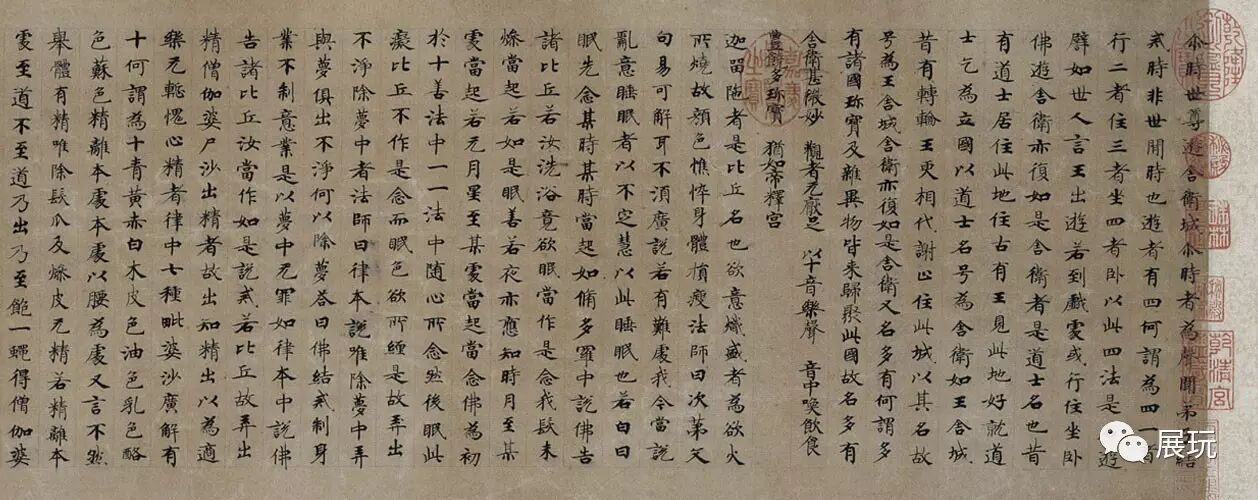 尒時世尊遊舍衛城尒時者為聲聞弟子結
戒時非世間時也遊者有四何謂為四一者
行二者住三者坐四者卧以此四法是遊
譬如世人言王出遊若到戲處或行住坐卧
佛遊舍衛亦復如是舍衛者是道士名也昔
有道士居住此地住古有王見此地好就道
士乞為立國以道士名号為舍衛如王舍城
昔有轉輪王更相代謝止住此城以其名故
号為王舍城舍衛亦復如是舍衛又名多有何謂多
有諸國珎寶及雜異物皆来歸聚此國故名多有
舍衛甚微妙 觀者无厭足 以十音樂聲 音中喚飲食
豐饒多珎寶 猶如帝釋宮
迦留陁者是比丘名也欲意熾盛者為欲火
所燒故顔色憔悴身體損瘦法師曰次第文
句易可解耳不湏廣說若有難處我今當說
亂意睡眠者以不定慧以此睡眠也若白日
眠先念某時某時當起如脩多羅中說佛告
諸比丘若汝洗浴竟欲眠當作是念我髮未
燥當起若如是眠善若夜亦應知時月至某
處當起若无月星至某處當起當念佛為初
於十善法中一一法中随心所念然後眠此
癡比丘不作是念而眠色欲所纏是故弄出
不淨除夢中者法師曰律本說唯除夢中弄
與夢俱出不淨何以除夢荅曰佛結戒制身
業不制意業是以夢中无罪如律本中說佛
告諸比丘汝當作如是說戒若比丘故弄出
精僧伽婆尸沙出精者故出知精出以為適
樂无輕愧心精者律中七種毗婆沙廣解有
十何謂為十青黃赤白木皮色油色乳色酪
色蘇色精離本處本處以腰為處又言不然
舉體有精唯除髮爪及燥皮无精若精離本
處至道不至道乃出乃至飽一蠅得僧伽婆
乾清宮
展玩